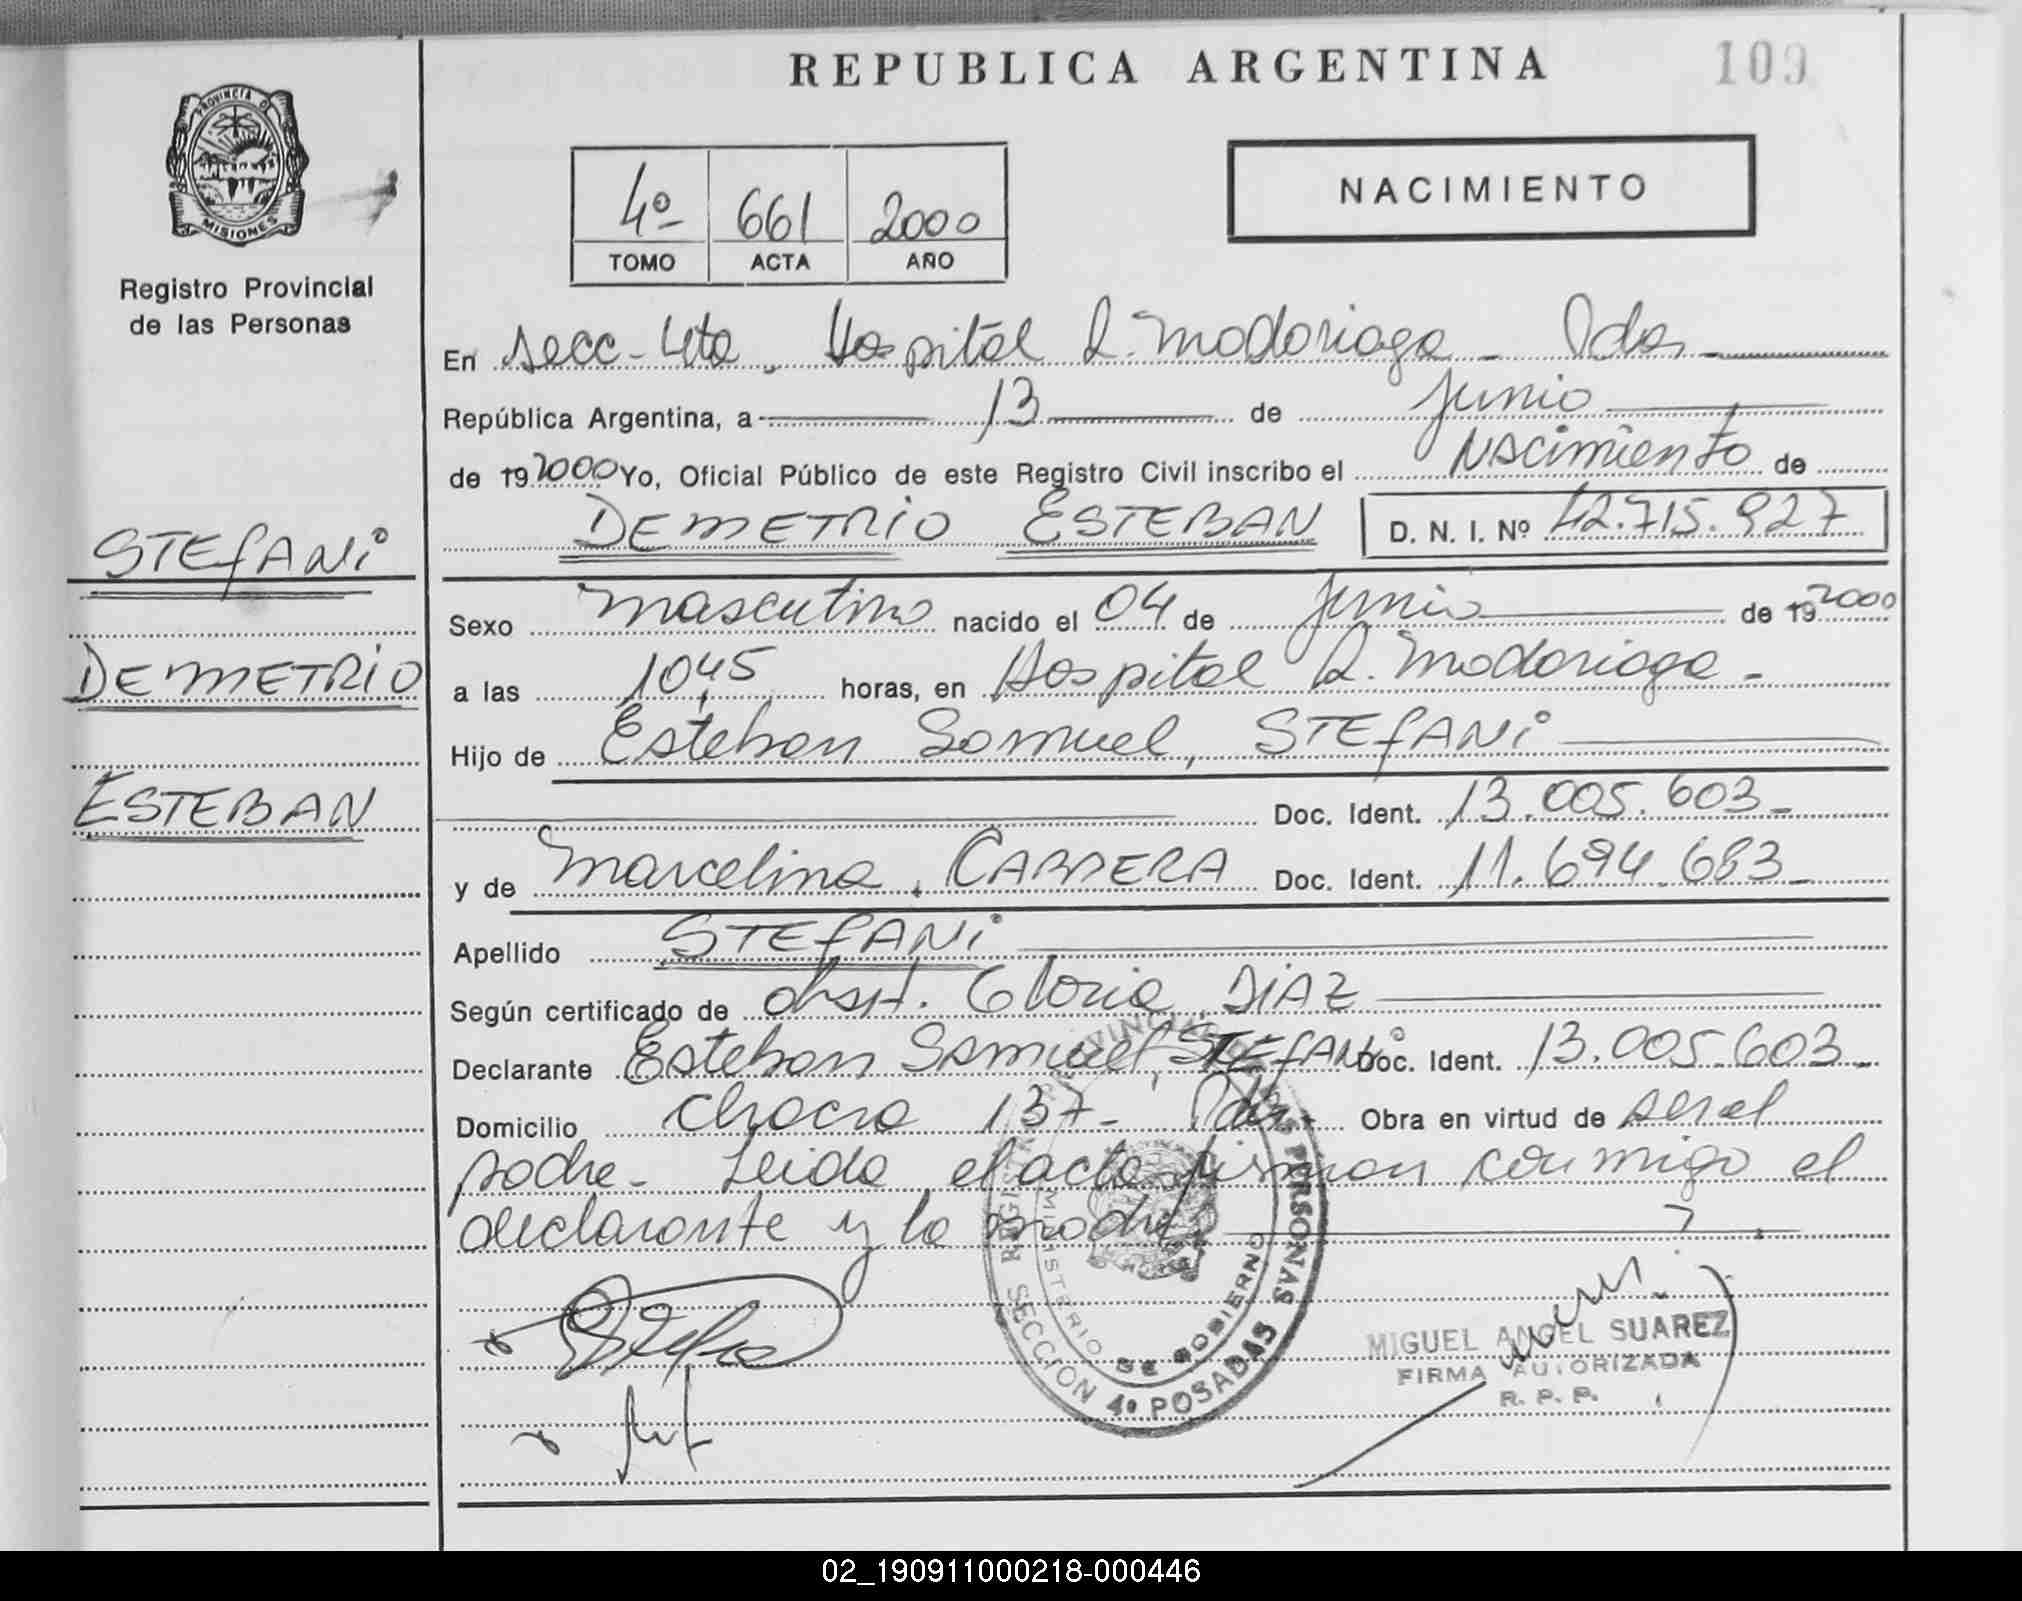 REPUBLICA ARGENTINA
109
PROVINCIA D
MISIONES
Registro Provincial
de las Personas
4º 661 2000
TOMO ACTA AÑO
NACIMIENTO
En secc. 4ta. Hospital R. Madariaga - Pdas -
República Argentina, a 13 de Junio
de 192000 Yo, Oficial Público de este Registro Civil inscribo el Nacimiento de
DEMETRIO ESTEBAN D. N. I. Nº 42.715.927
STEFANI
DEMETRIO
ESTEBAN
Sexo masculino nacido el 04 de Junio de 192000
a las 10,45 horas, en Hospital R. Madariaga -
Hijo de Esteban Samuel, STEFANI
Doc. Ident. 13.005.603 -
y de Marcelina, CABRERA Doc. Ident. 11.694.683 -
Apellido STEFANI
Según certificado de obst. Gloria DIAZ
Declarante Esteban Samuel, STEFANI Doc. Ident. 13.005.603 -
Domicilio Chacra 137 - Pdas - Obra en virtud de ser el
padre - Leida el acta firman conmigo el
declarante y la madre
REGISTRO PROVINCIAL DE LAS PERSONAS
MINISTERIO DE GOBIERNO
SECCION 4º POSADAS
MIGUEL ANGEL SUAREZ
FIRMA AUTORIZADA
R. P. P.
02_190911000218-000446